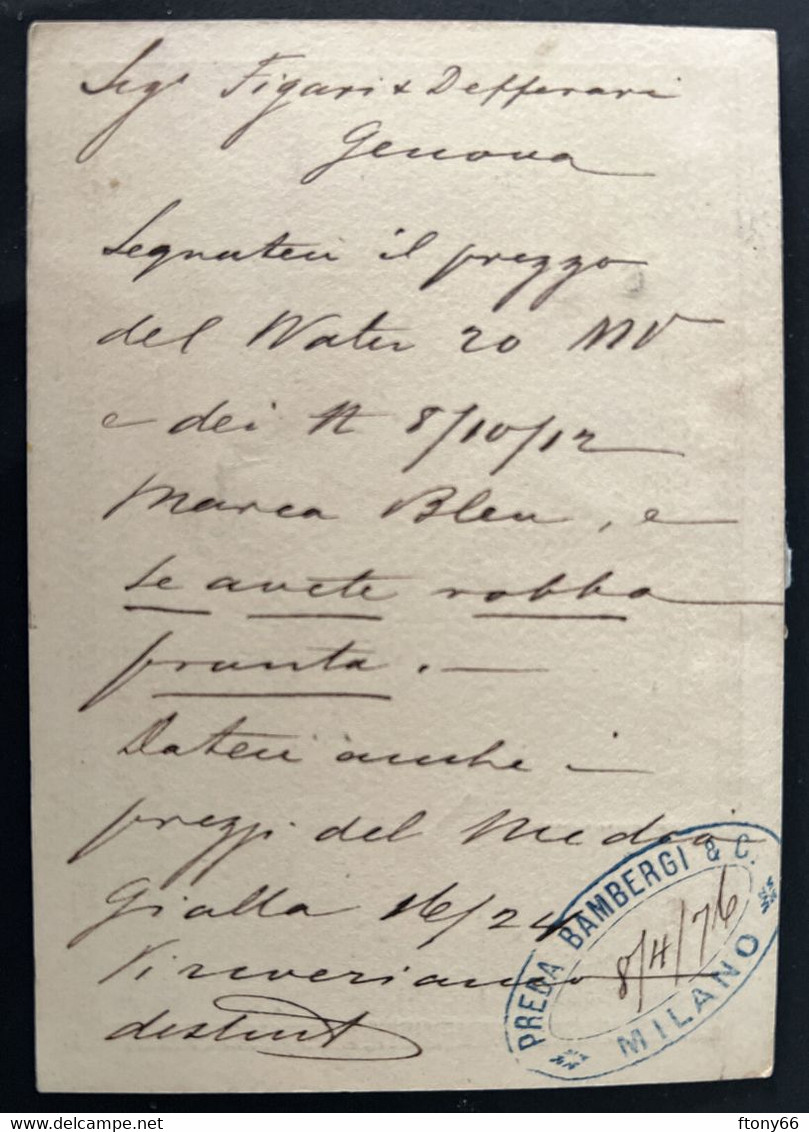 Sigʳ Figari & Defferrari
Genova
Segnateci il prezzo
del Water 20 NV
e dei N 8/10/12
Marca Bleu, e
se avete robba
pronta. —
Dateci anche i
prezzi del Medio
Gialla 16/24
Vi riveriamo
distint
PREDA BAMBERGI & C.
8/4/76
MILANO
ftony66